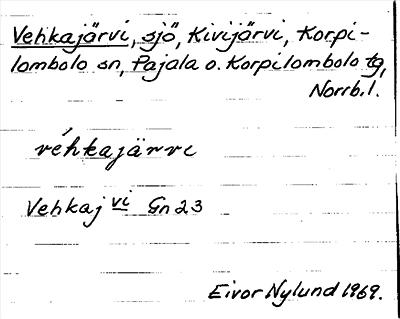 Vehkajärvi, sjö, Kivijärvi, Korpi-
lombolo sn, Pajala o. Korpilombolo tg,
Norrb. l.
véhkajärvi
Vehkaj vi Gn 23
Eivor Nylund 1969.